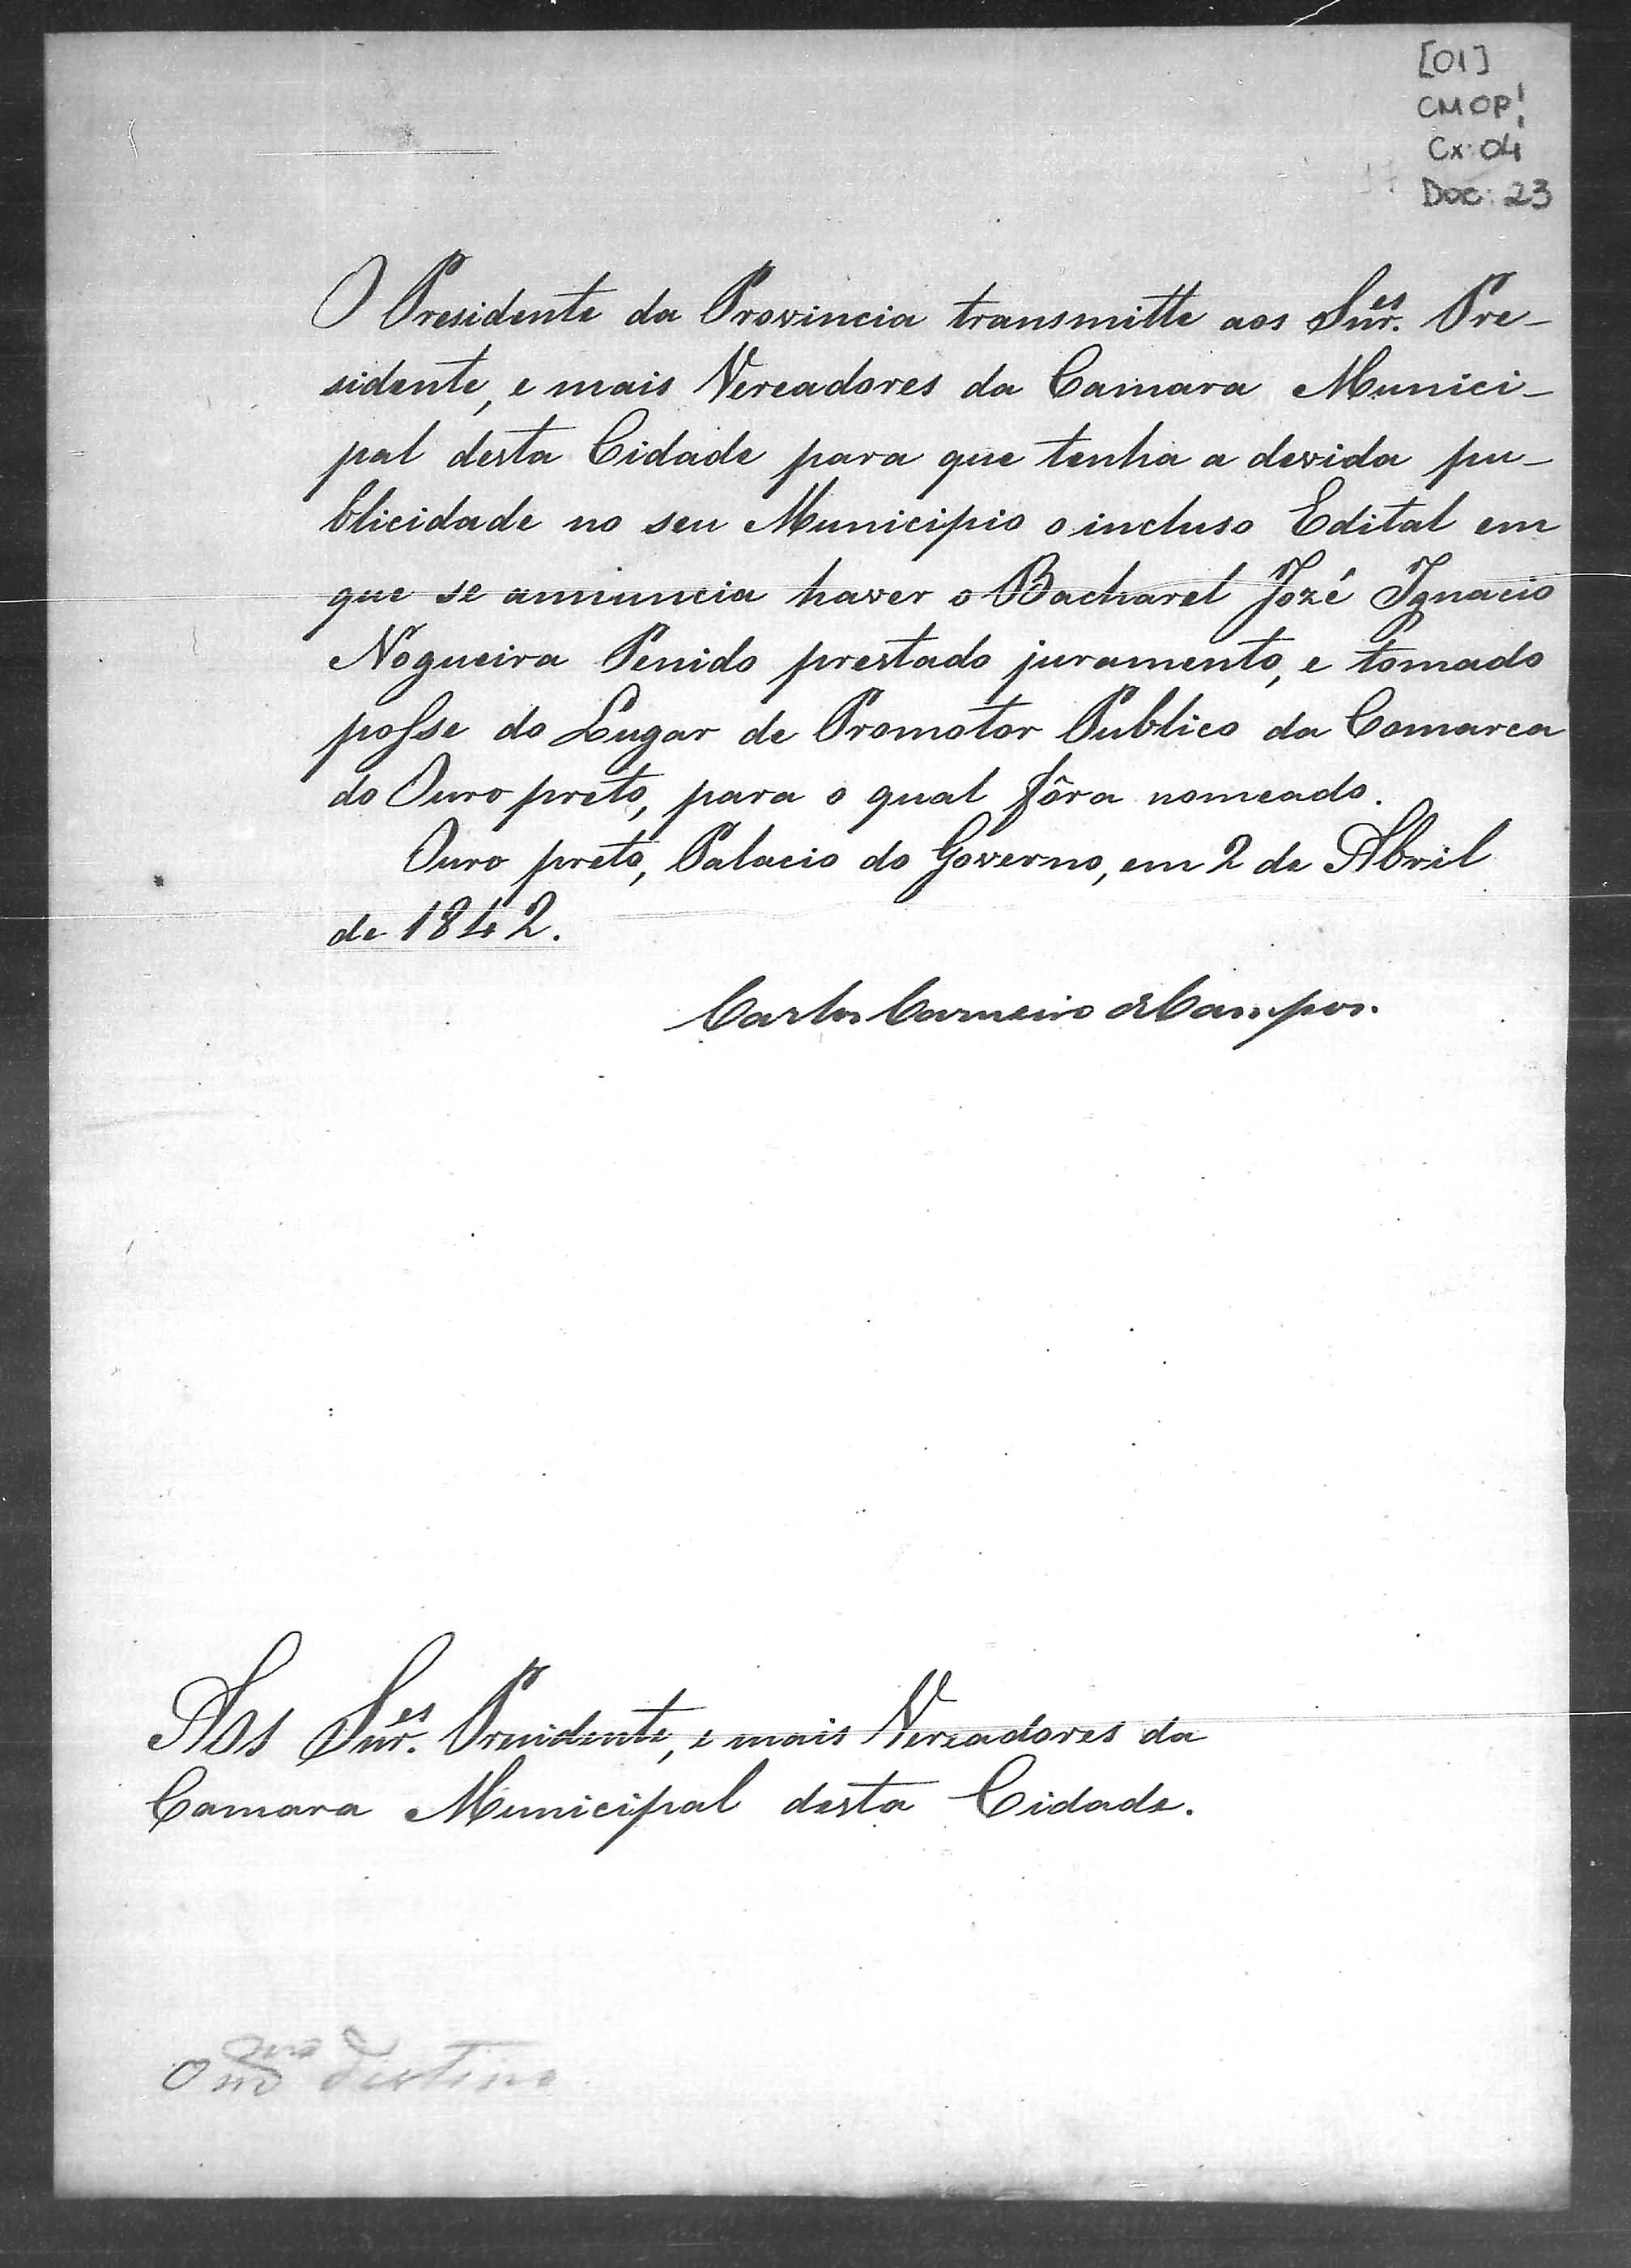 [01]
CMOP!
Cx: 04
Doc: 23
O Presidente da Provincia transmitte aos Snr.es Pre-
sidente, e mais Vereadores da Camara Munici-
pal desta Cidade para que tenha a devida pu-
blicidade no seu Municipio o incluso Edital em
que se annuncia haver o Bacharel Jozé Ignacio
Nogueira Penido prestado juramento, e tomado
posse do Lugar de Promotor Publico da Comarca
do Ouro preto, para o qual fôra nomeado.
Ouro preto, Palacio do Governo, em 2 de Abril
de 1842.
Carlos Carneiro de Campos.
Aos Snr.es Presidente, e mais Vereadores da
Camara Municipal desta Cidade.
O destino